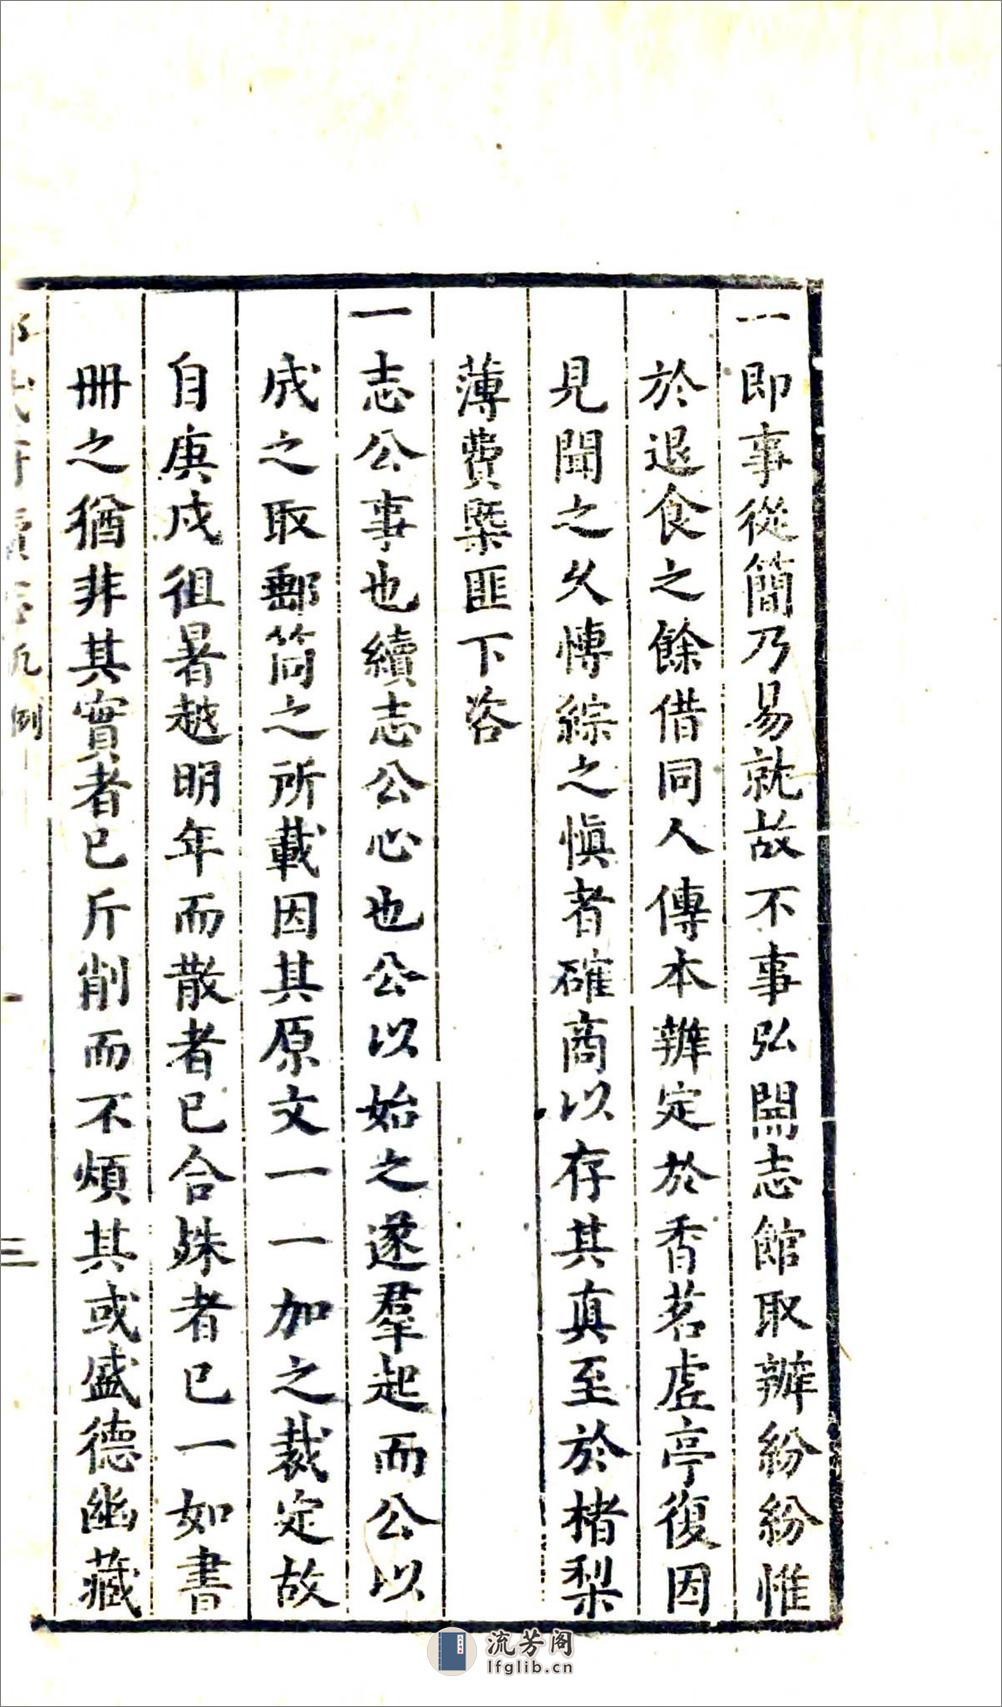 一即事從簡乃易就故不事弘闢志館取辦紛紛惟
於退食之餘借同人傳本辦定於香茗虛亭復因
見聞之久慱綜之慎者確商以存其真至於楮梨
薄費槩匪下咨
一志公事也續志公心也公以始之遂羣起而公以
成之取郵筒之所載因其原文一一加之裁定故
自庚戍徂暑越明年而散者已合殊者已一如書
冊之猶非其實者已斤削而不煩其或盛德幽藏
續志凡例
三
流芳阁
lfglib.cn